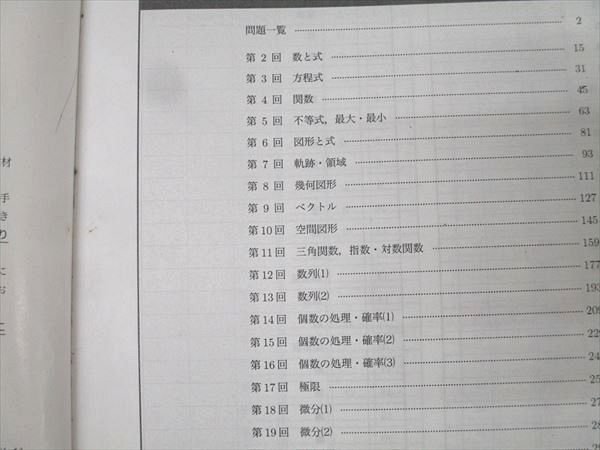 問題一覧 2
第 2 回 数と式 15
第 3 回 方程式 31
第 4 回 関数 45
第 5 回 不等式，最大・最小 63
第 6 回 図形と式 81
第 7 回 軌跡・領域 93
第 8 回 幾何図形 111
第 9 回 ベクトル 127
第10回 空間図形 145
第11回 三角関数，指数・対数関数 159
第12回 数列(1) 177
第13回 数列(2) 193
第14回 個数の処理・確率(1) 209
第15回 個数の処理・確率(2)
第16回 個数の処理・確率(3)
第17回 極限
第18回 微分(1)
第19回 微分(2)
材
手
き
り
に
お